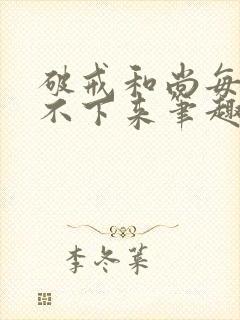 破戒和尚每
不下来笔趣
李冬菓